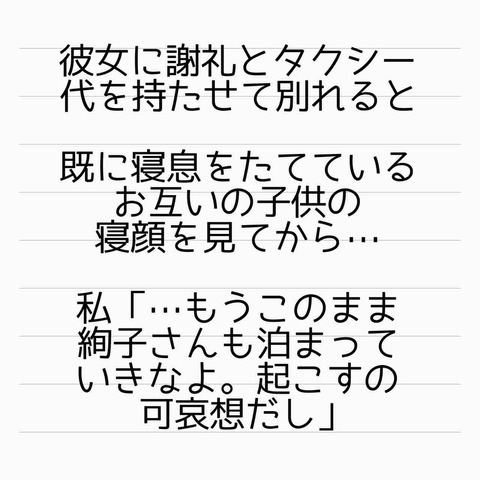 彼女に謝礼とタクシー
代を持たせて別れると
既に寝息をたてている
お互いの子供の
寝顔を見てから…
私「…もうこのまま
絢子さんも泊まって
いきなよ。起こすの
可哀想だし」